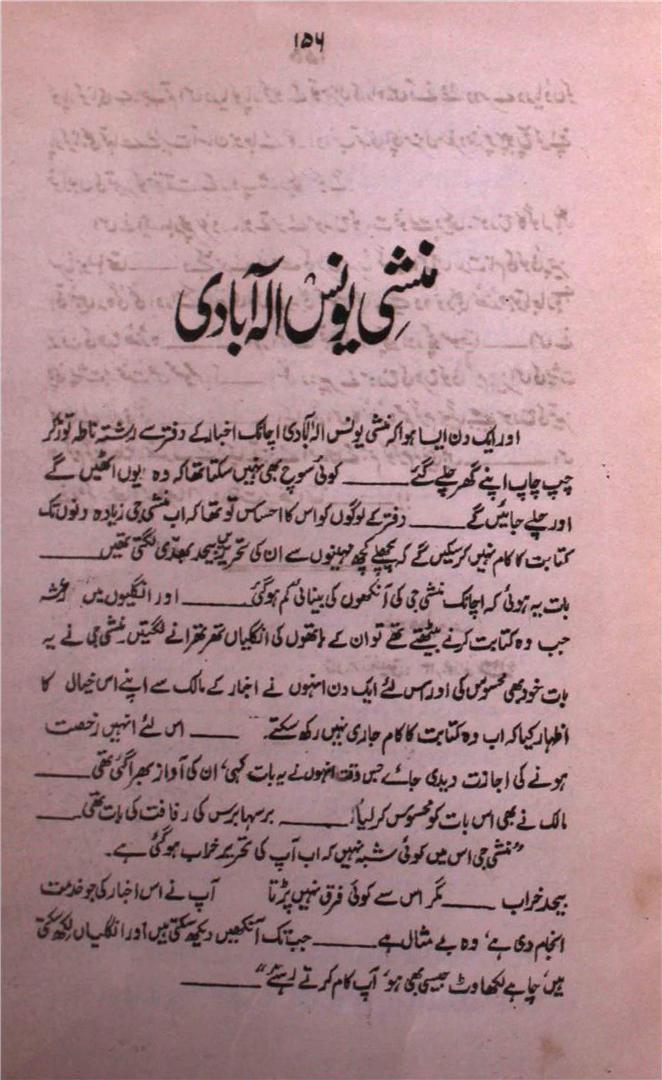 ۱۵۶
منشی یونس الہ آبادی
اور ایک دن ایسا ہوا کہ منشی یونس الہ آبادی اچانک اخبار کے دفتر سے رشتہ ناطہ توڑ کر
چپ چاپ اپنے گھر چلے گئے ــــــــ کوئی سوچ بھی نہیں سکتا تھا کہ وہ یوں اٹھیں گے
اور چلے جائیں گے ــــــــ دفتر کے لوگوں کو اس کا احساس تو تھا کہ اب منشی جی زیادہ دنوں تک
کتابت کا کام نہیں کر سکیں گے کہ پچھلے کچھ مہینوں سے ان کی تحریریں بیحد بھدّی لگتی تھیں ــــــــ
بات یہ ہوئی کہ اچانک منشی جی کی آنکھوں کی بینائی کم ہو گئی ــــــــ اور انگلیوں میں رعشہ
جب وہ کتابت کرنے بیٹھتے تھے تو ان کے ہاتھوں کی انگلیاں تھر تھرانے لگتیں۔ منشی جی نے یہ
بات خود بھی محسوس کی اور اس لئے ایک دن انہوں نے اخبار کے مالک سے اپنے اس خیال کا
اظہار کیا کہ اب وہ کتابت کا کام جاری نہیں رکھ سکتے۔ ــــــــ اس لئے انہیں رخصت
ہونے کی اجازت دیدی جائے جس وقت انہوں نے یہ بات کہی، ان کی آواز بھرا گئی تھی ــــــــ
مالک نے بھی اس بات کو محسوس کر لیا! ــــــــ برسہا برس کی رفاقت کی بات تھی ــــــــ
"منشی جی اس میں کوئی شبہ نہیں کہ اب آپ کی تحریر خراب ہو گئی ہے۔
بیحد خراب ــــــــ مگر اس سے کوئی فرق نہیں پڑتا آپ نے اس اخبار کی جو خدمت
انجام دی ہے، وہ بے مثال ہے ــــــــ جب تک آنکھیں دیکھ سکتی ہیں اور انگلیاں لکھ سکتی
ہیں، چاہے لکھاوٹ جیسی بھی ہو، آپ کام کرتے رہئے" ــــــــ